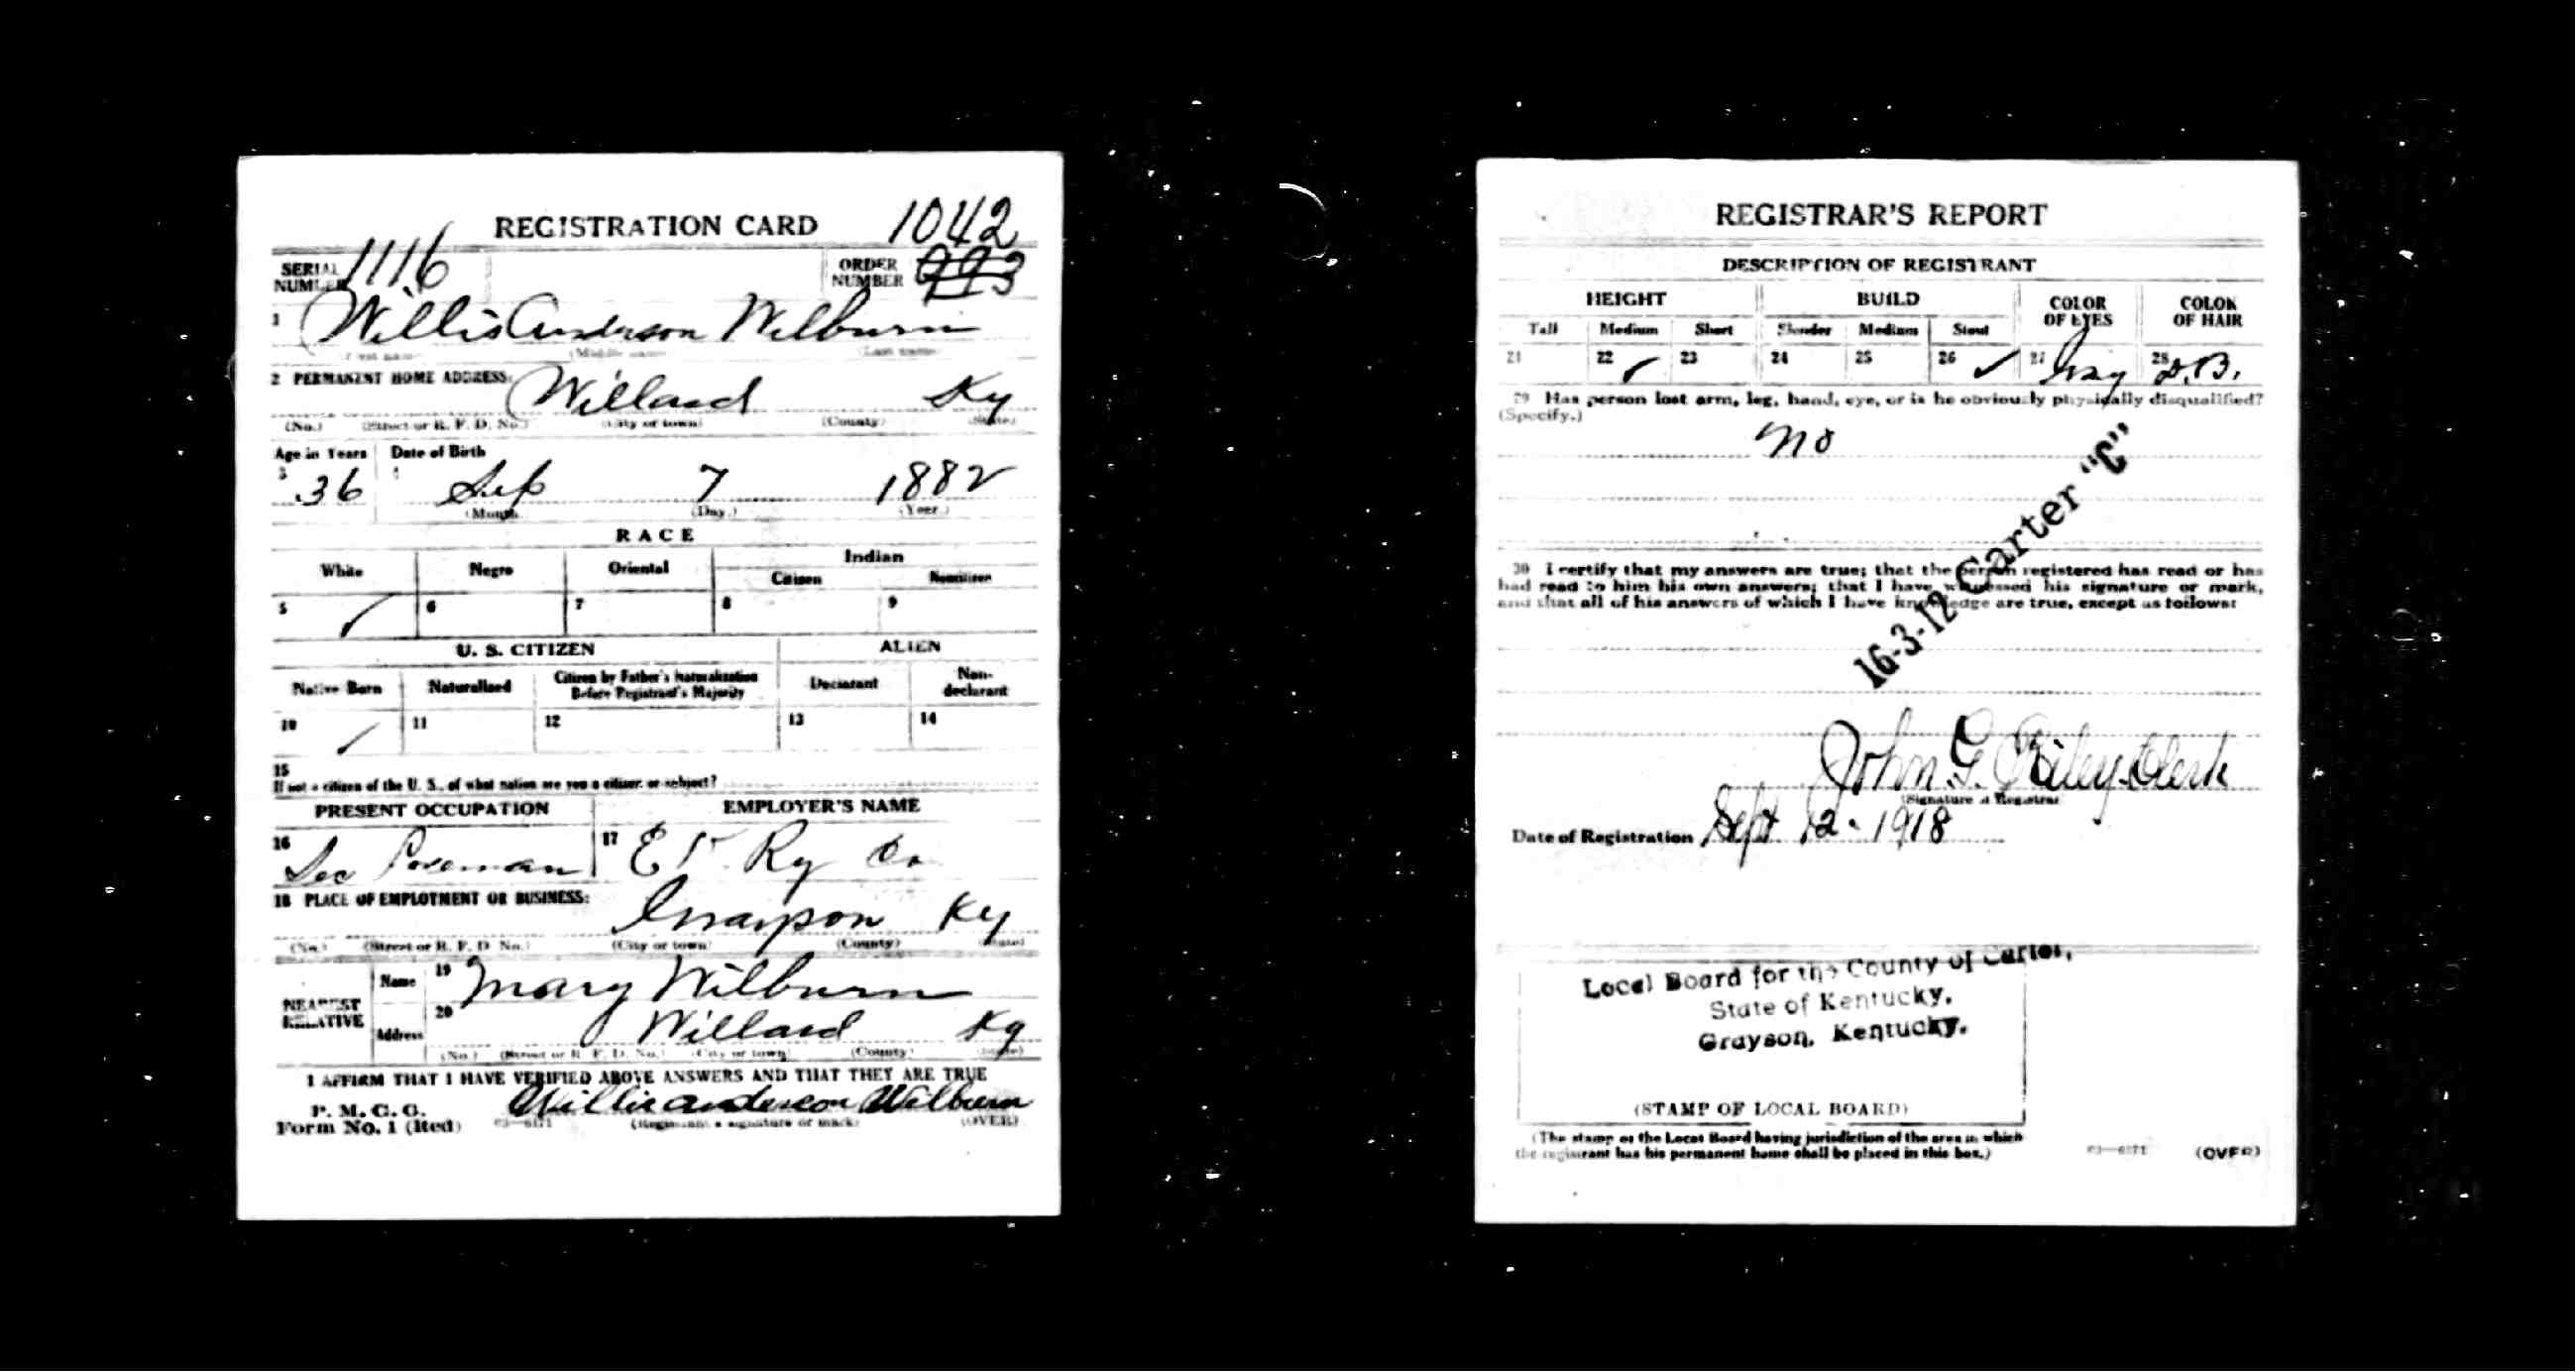 REGISTRATION CARD
1042
SERIAL NUMBER 1116 ORDER NUMBER 993
1 Willis Anderson Wilburn
(First name) (Middle name) (Last name)
2 PERMANENT HOME ADDRESS: Willard Ky
(No.) (Street or R. F. D. No.) (City or town) (County) (State)
Age in Years Date of Birth
3 36 4 Sep 7 1882
(Month.) (Day.) (Year.)
RACE
White Negro Oriental Indian
Citizen Noncitizen
5 ✓ 6 7 8 9
U. S. CITIZEN ALIEN
Native Born Naturalized Citizen by Father's Naturalization Before Registrant's Majority Declarant Non-declarant
10 ✓ 11 12 13 14
15
If not a citizen of the U. S., of what nation are you a citizen or subject?
PRESENT OCCUPATION EMPLOYER'S NAME
16 Sec Foreman 17 E K Ry Co
18 PLACE OF EMPLOYMENT OR BUSINESS:
Grayson Ky
(No.) (Street or R. F. D. No.) (City or town) (County) (State)
NEAREST RELATIVE
Name 19 Mary Wilburn
Address 20 Willard Ky
(No.) (Street or R. F. D. No.) (City or town) (County) (State)
I AFFIRM THAT I HAVE VERIFIED ABOVE ANSWERS AND THAT THEY ARE TRUE
P. M. G. O.
Form No. 1 (Red) 03—6171 Willis Anderson Wilburn
(Registrant's signature or mark) (OVER)
REGISTRAR'S REPORT
DESCRIPTION OF REGISTRANT
HEIGHT BUILD COLOR OF EYES COLOR OF HAIR
Tall Medium Short Slender Medium Stout
21 22 ✓ 23 24 25 26 ✓ 27 Gray 28 D.B.
29 Has person lost arm, leg, hand, eye, or is he obviously physically disqualified?
(Specify.)
No
16-3-12 Carter "C"
30 I certify that my answers are true; that the person registered has read or has
had read to him his own answers; that I have witnessed his signature or mark,
and that all of his answers of which I have knowledge are true, except as follows:
John G. Riley Clerk
(Signature of Registrar)
Date of Registration Sept 12 - 1918
Local Board for the County of Carter,
State of Kentucky,
Grayson, Kentucky.
(STAMP OF LOCAL BOARD)
(The stamp of the Local Board having jurisdiction of the area in which
the registrant has his permanent home shall be placed in this box.)
03—6171 (OVER)